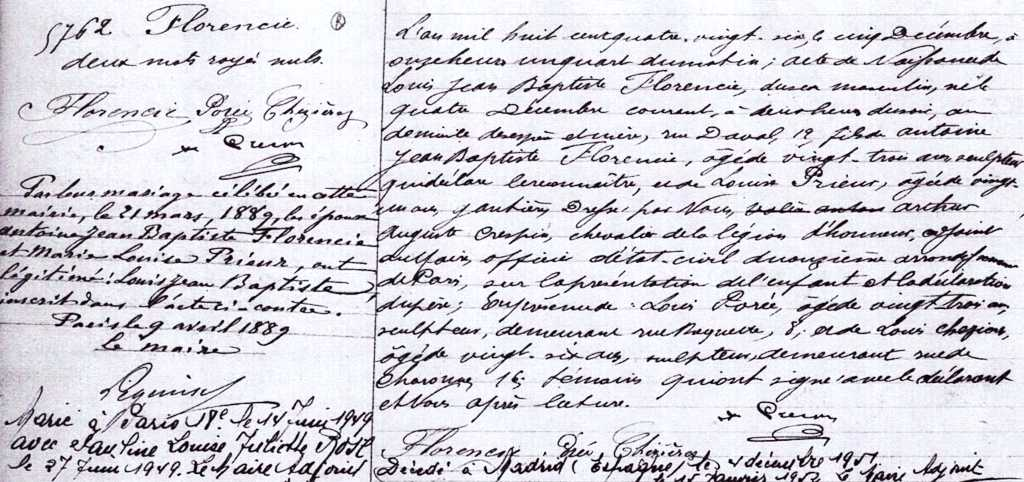 5762 Florencie.
deux mots rayés nuls.
Florencie Porée Chézières
Par leur mariage célébré en cette
mairie, le 21 mars, 1889, les époux
Antoine Jean Baptiste Florencie
et Marie Louise Prieur, ont
légitimé: Louis Jean Baptiste,
inscrit dans l'acte ci-contre.
Paris le 9 avril 1889
le maire
Marié à Paris 18e le 14 Juin 1949
avec Pauline Louise Juliette
le 27 Juin 1949. Le Maire Adjoint
L'an mil huit cent quatre-vingt-six, le cinq Décembre, à
onze heures un quart du matin; acte de Naissance de
Louis Jean Baptiste Florencie, du sexe masculin, né le
quatre Décembre courant, à deux heures du soir, au
domicile de ses père et mère, rue Daval, 19, fils de Antoine
Jean Baptiste Florencie, âgé de vingt-trois ans sculpteur
qui déclare le reconnaître, et de Louise Prieur, âgée de vingt-
un ans, gantière, Dressé par Nous, Arthur
Auguste Crespin, chevalier de la légion d'honneur, adjoint
au maire, officier d'état-civil du onzième arrondissement
de Paris, sur la présentation de l'enfant et la déclaration
du père; En présence de: Louis Porée, âgé de vingt trois ans,
sculpteur, demeurant rue Baquette, 8; et de Louis
âgé de vingt-six ans, sculpteur, demeurant rue de
Charonne 16; témoins qui ont signé avec le déclarant
et Nous après lecture.
Florencie Porée Chézières
Décédé à Madrid (Espagne) le décembre 1951
le 15 Janvier 1952 Le Maire Adjoint